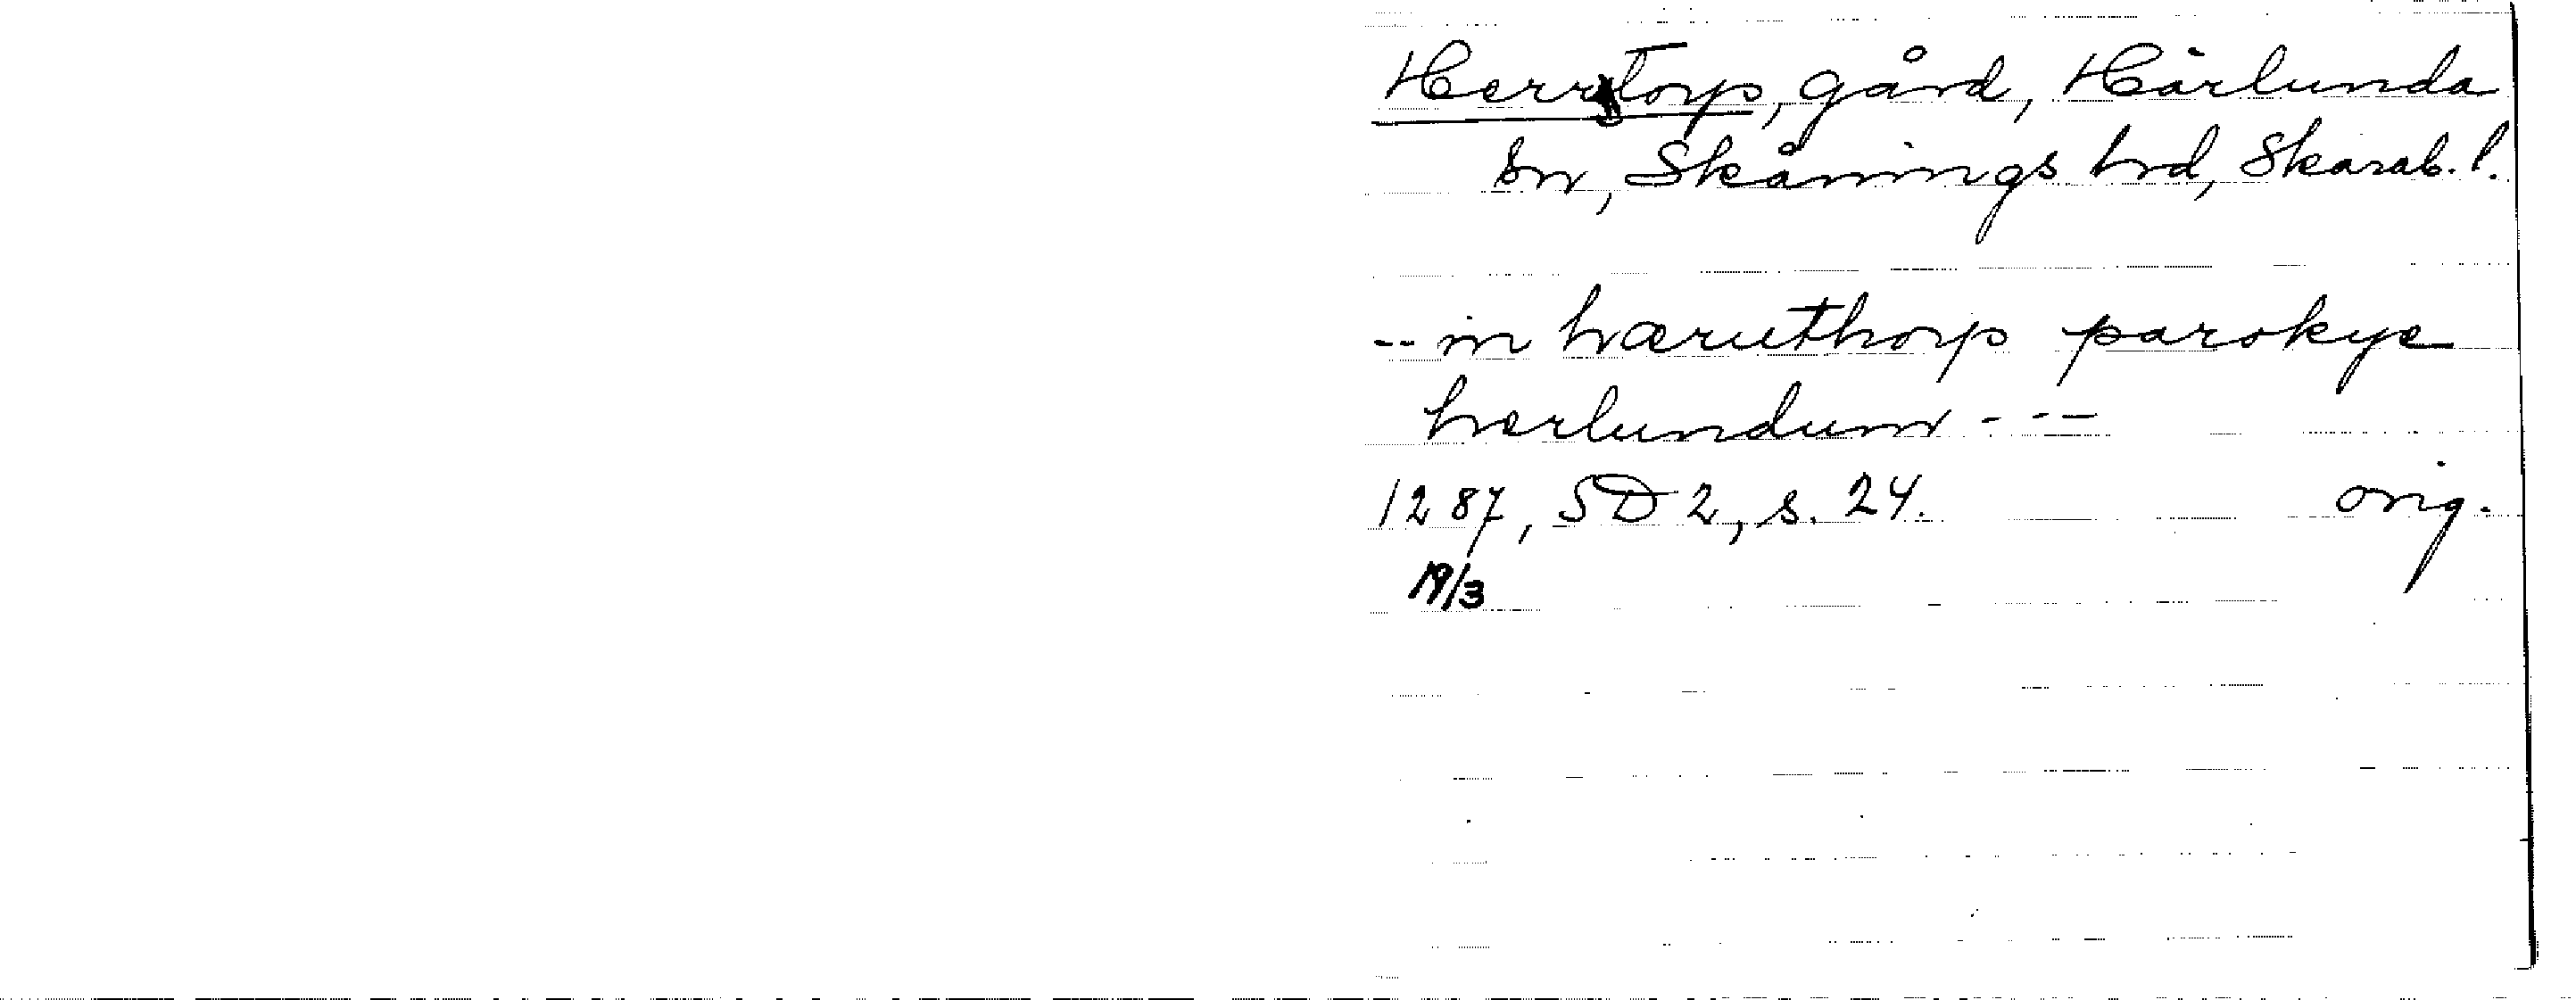 Herrtorp, gård, Härlunda
sn, Skånings hrd, Skarab. l.
-- in hæruthorp parokye
hærlundum ---
1287, SD 2, s. 24. orig.
19/3